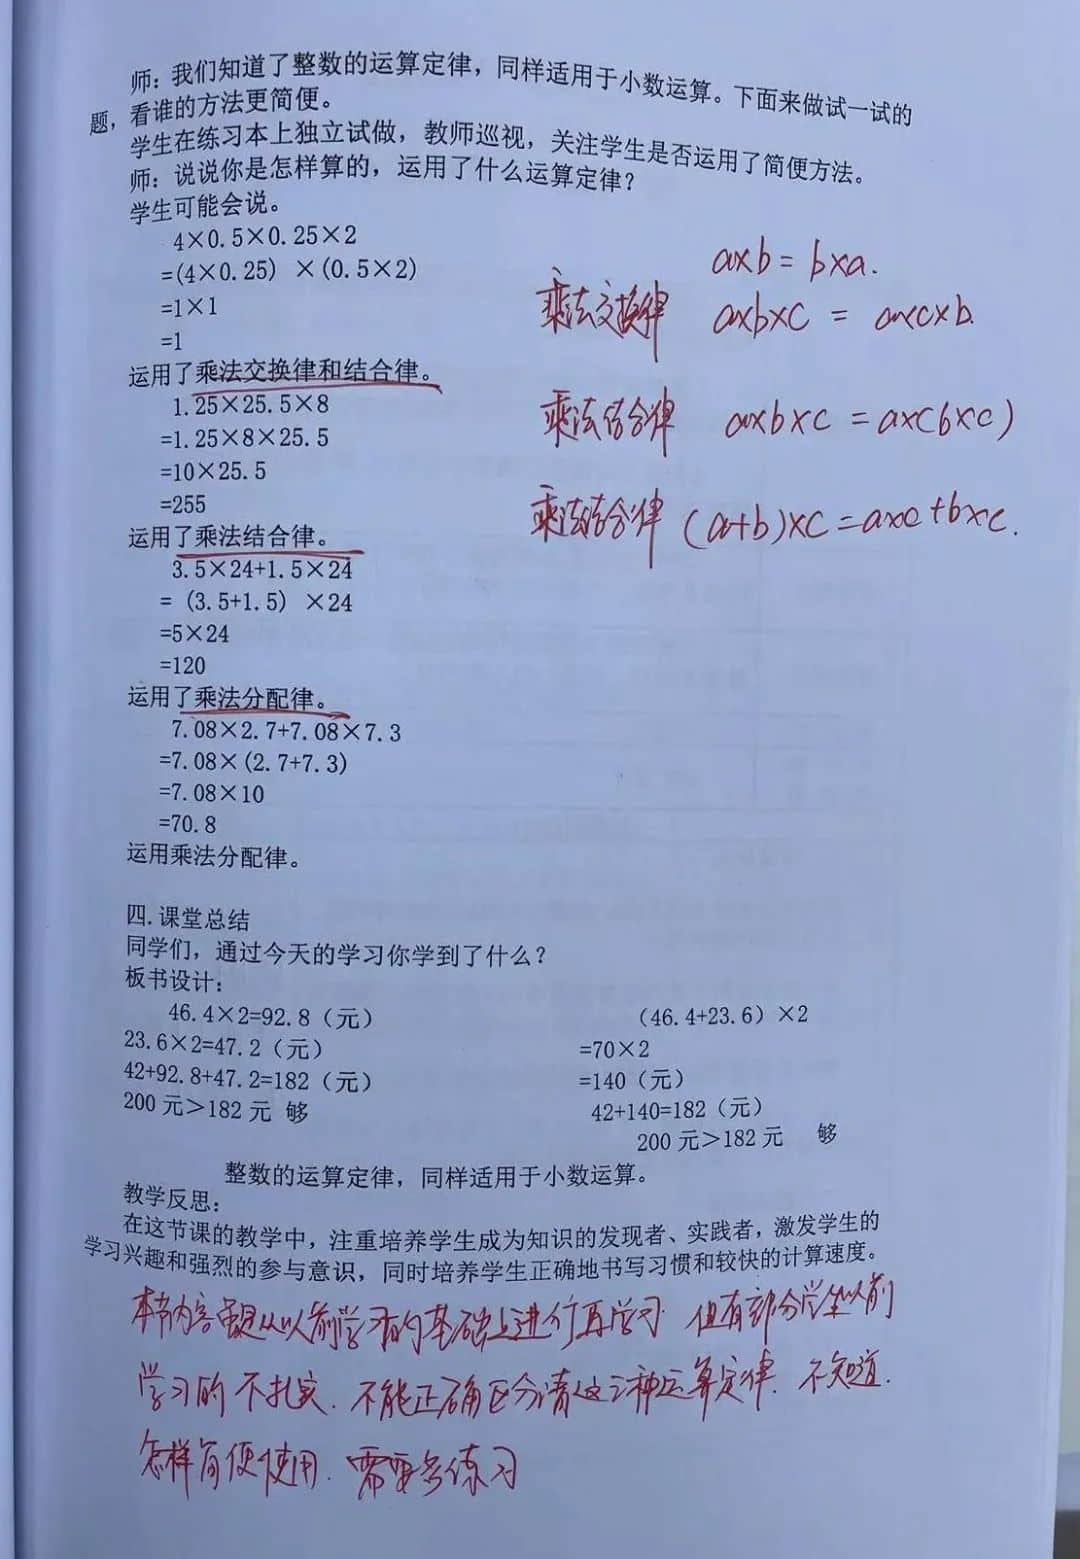 师：我们知道了整数的运算定律，同样适用于小数运算。下面来做试一试的
题，看谁的方法更简便。
学生在练习本上独立试做，教师巡视，关注学生是否运用了简便方法。
师：说说你是怎样算的，运用了什么运算定律？
学生可能会说。
4×0.5×0.25×2
=(4×0.25) ×(0.5×2)
=1×1
=1
运用了乘法交换律和结合律。
1.25×25.5×8
=1.25×8×25.5
=10×25.5
=255
运用了乘法结合律。
3.5×24+1.5×24
= (3.5+1.5) ×24
=5×24
=120
运用了乘法分配律。
7.08×2.7+7.08×7.3
=7.08×(2.7+7.3)
=7.08×10
=70.8
运用乘法分配律。
a×b = b×a.
乘法交换律 a×b×c = a×c×b.
乘法结合律 a×b×c = a×(b×c)
乘法结合律 (a+b)×c=a×c+b×c.
四.课堂总结
同学们，通过今天的学习你学到了什么？
板书设计：
46.4×2=92.8（元） （46.4+23.6）×2
23.6×2=47.2（元） =70×2
42+92.8+47.2=182（元） =140（元）
200元>182元 够 42+140=182（元）
200元>182元 够
整数的运算定律，同样适用于小数运算。
教学反思：
在这节课的教学中，注重培养学生成为知识的发现者、实践者，激发学生的
学习兴趣和强烈的参与意识，同时培养学生正确地书写习惯和较快的计算速度。
本节内容虽是从以前学习的基础上进行再学习 但有部分学生以前
学习的不扎实. 不能正确区分清这三种运算定律. 不知道.
怎样简便使用. 需要多练习